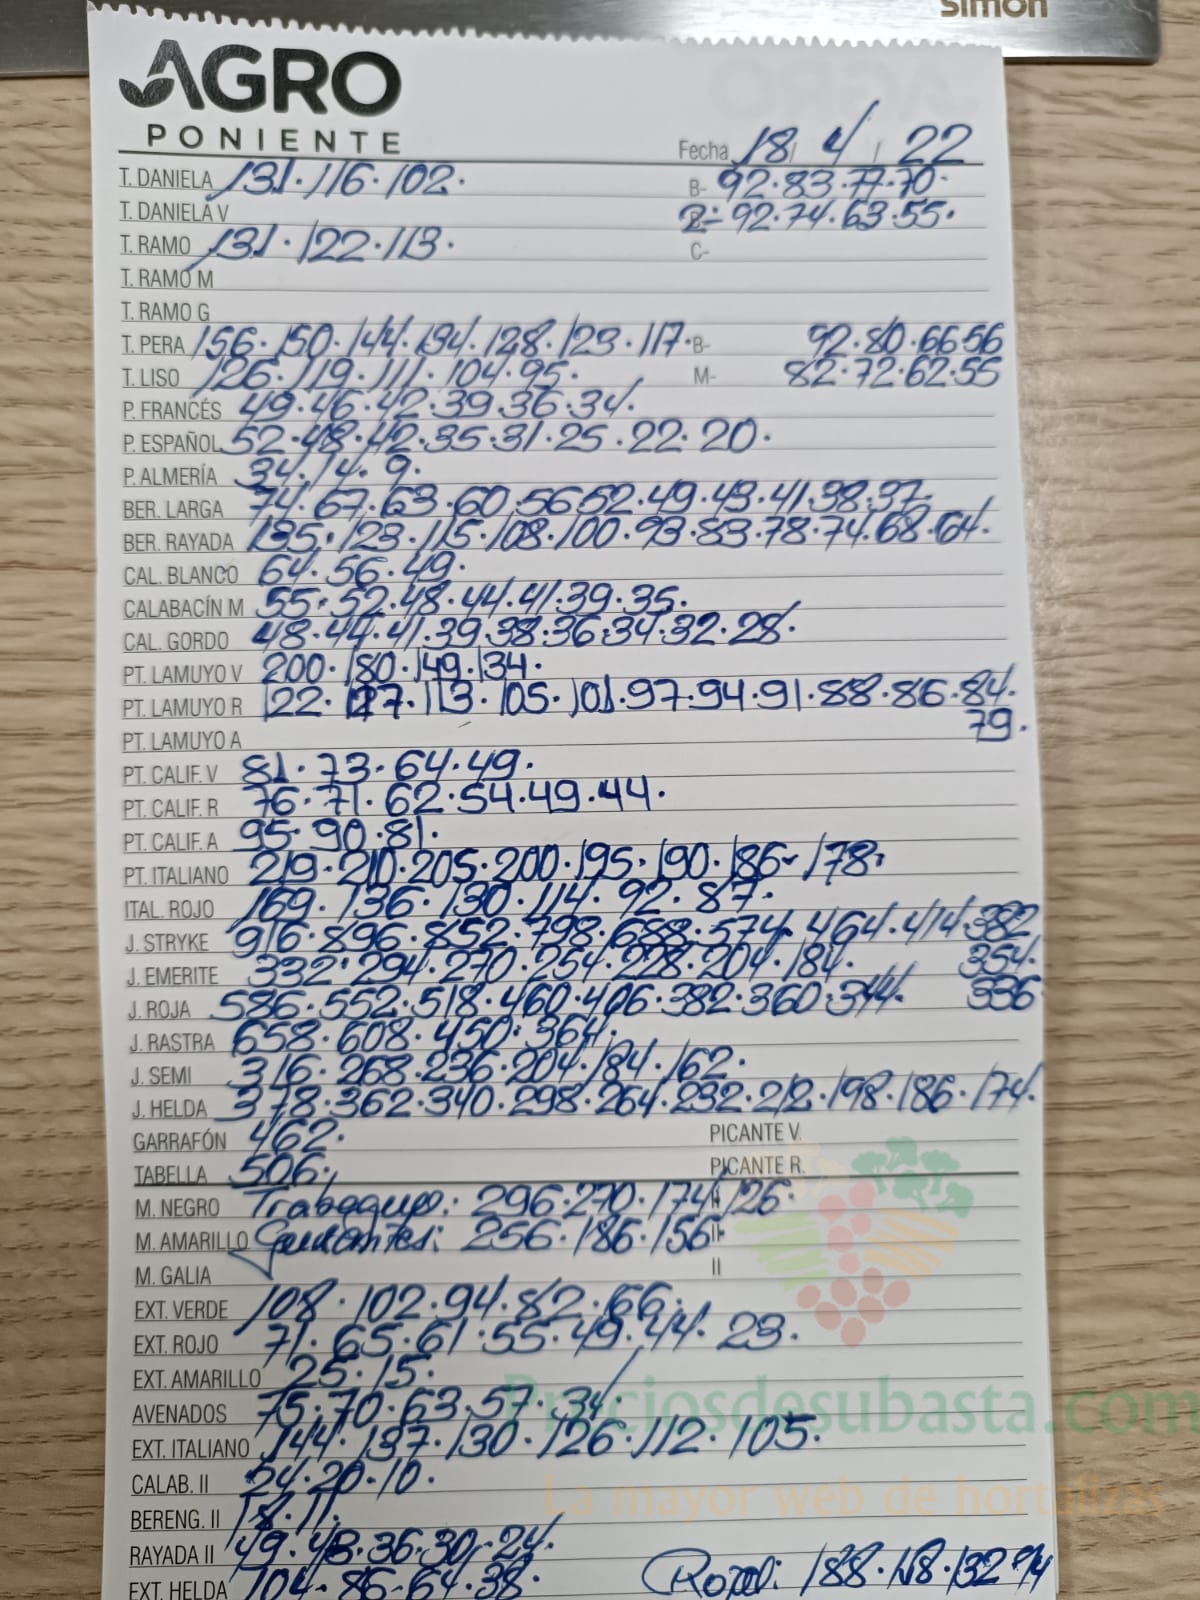 simon
AGRO
PONIENTE
Fecha 18/ 4 / 22
T. DANIELA 131.116.102. B- 92.83.77.70.
T. DANIELA V 2:- 92.74.63.55.
T. RAMO 131.122.113. C-
T. RAMO M
T. RAMO G
T. PERA 156.150.144.134.128.123.117. B- 92.80.66 56
T. LISO 126.119.111.104.95. M- 82.72.62.55
P. FRANCÉS 49.46.42.39.36.34.
P. ESPAÑOL 52.48.42.35.31.25.22.20.
P. ALMERÍA 34.14.9.
BER. LARGA 74.67.63.60.56 52.49.43.41.38.37
BER. RAYADA 135.123.115.108.100.93.83.78.74.68.64.
CAL. BLANCO 64.56.49.
CALABACÍN M 55.52.48.44.41.39.35.
CAL. GORDO 48.44.41.39.38.36.34.32.28.
PT. LAMUYO V 200.180.149.134.
PT. LAMUYO R 122.117.113.105.101.97.94.91.88.86.84.
79.
PT. LAMUYO A
PT. CALIF. V 81.73.64.49.
PT. CALIF. R 76.71.62.54.49.44.
PT. CALIF. A 95.90.81.
PT. ITALIANO 219.210.205.200.195.190.186.178.
ITAL. ROJO 169.136.130.114.92.87.
J. STRYKE 916.896.852.798.688.574.464.414.382
354.
J. EMERITE 332.294.270.254.228.204.184.
J. ROJA 586.552.518.460.406.382.360.344. 336
J. RASTRA 658.608.450.364.
J. SEMI 316.268.236.204.184.162.
J. HELDA 378.362.340.298.264.232.212.198.186.174.
GARRAFÓN 462. PICANTE V.
TABELLA 506. PICANTE R.
M. NEGRO 296.270.174.126.
M. AMARILLO 256.186.156. II
M. GALIA II
EXT. VERDE 108.102.94.82.66.
EXT. ROJO 71.65.61.55.49.44.23.
EXT. AMARILLO 25.15.
AVENADOS 75.70.63.57.34
Preciosdesubasta.com
EXT. ITALIANO 144.137.130.126.112.105.
CALAB. II 54.20.10.
La mayor web de hortalizas
BERENG. II 18.11.
RAYADA II 49.43.36.30.24.
EXT. HELDA 104.86.64.38.